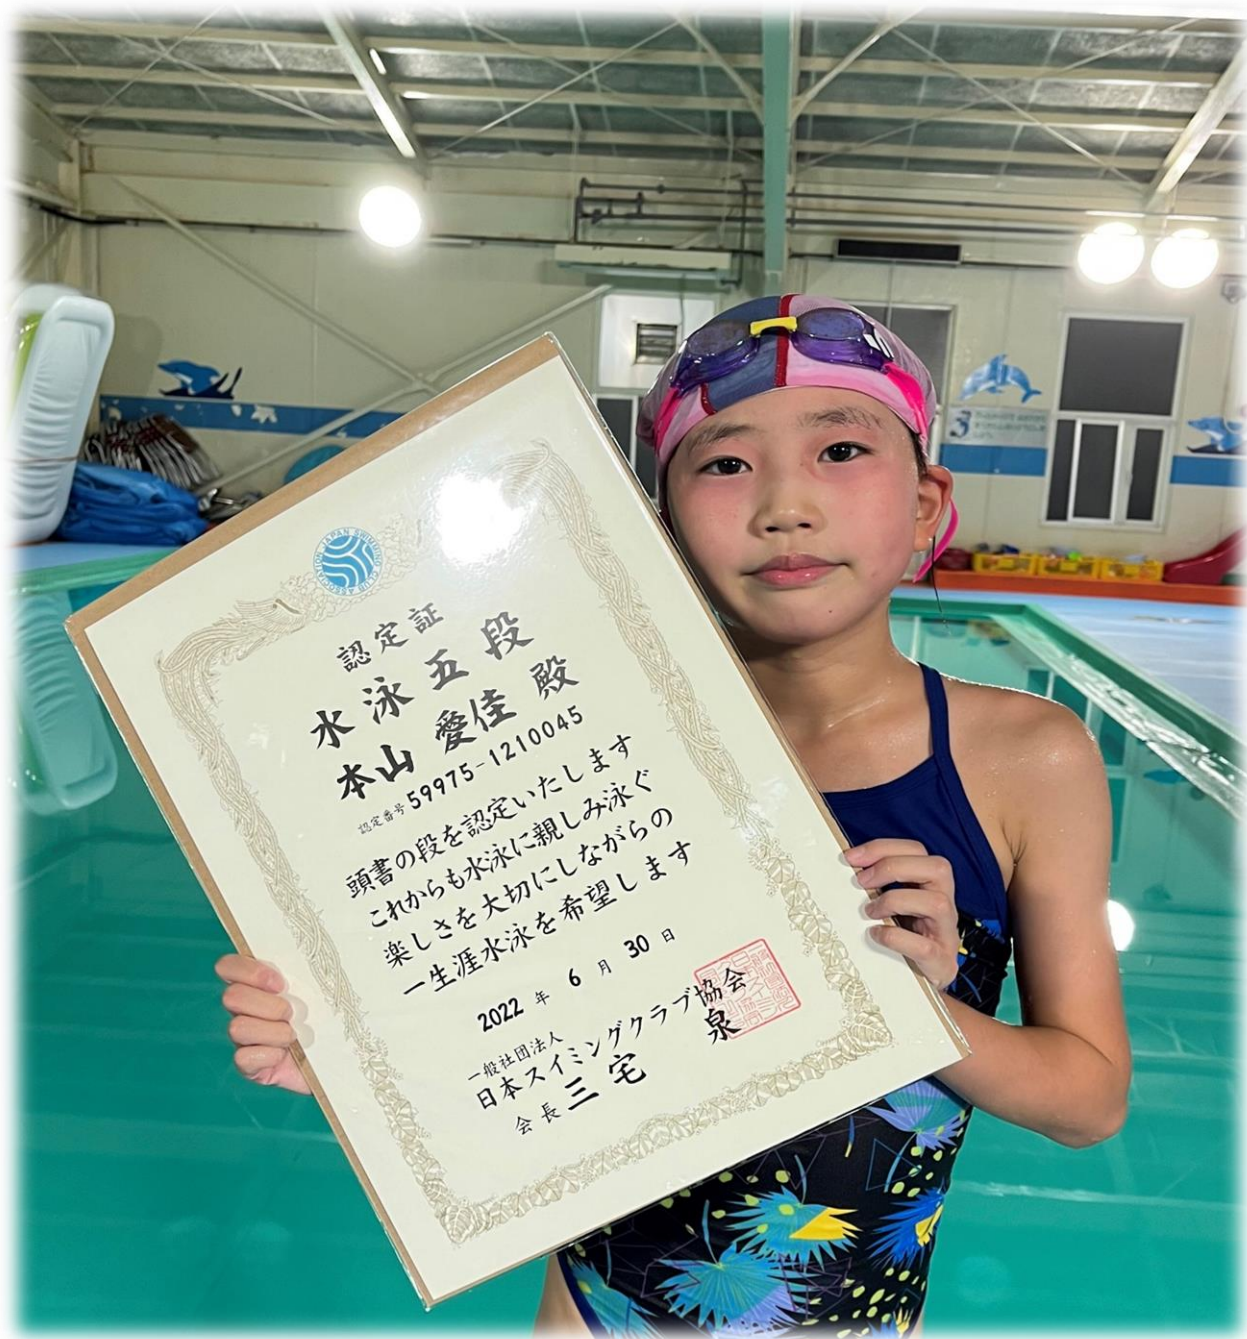 認定証
水泳五段
本山 愛佳 殿
認定番号 59975-1210045
頭書の段を認定いたします
これからも水泳に親しみ泳ぐ
楽しさを大切にしながらの
一生涯水泳を希望します
2022 年 6 月 30 日
一般社団法人
日本スイミングクラブ協会
会長 三宅 泉
3